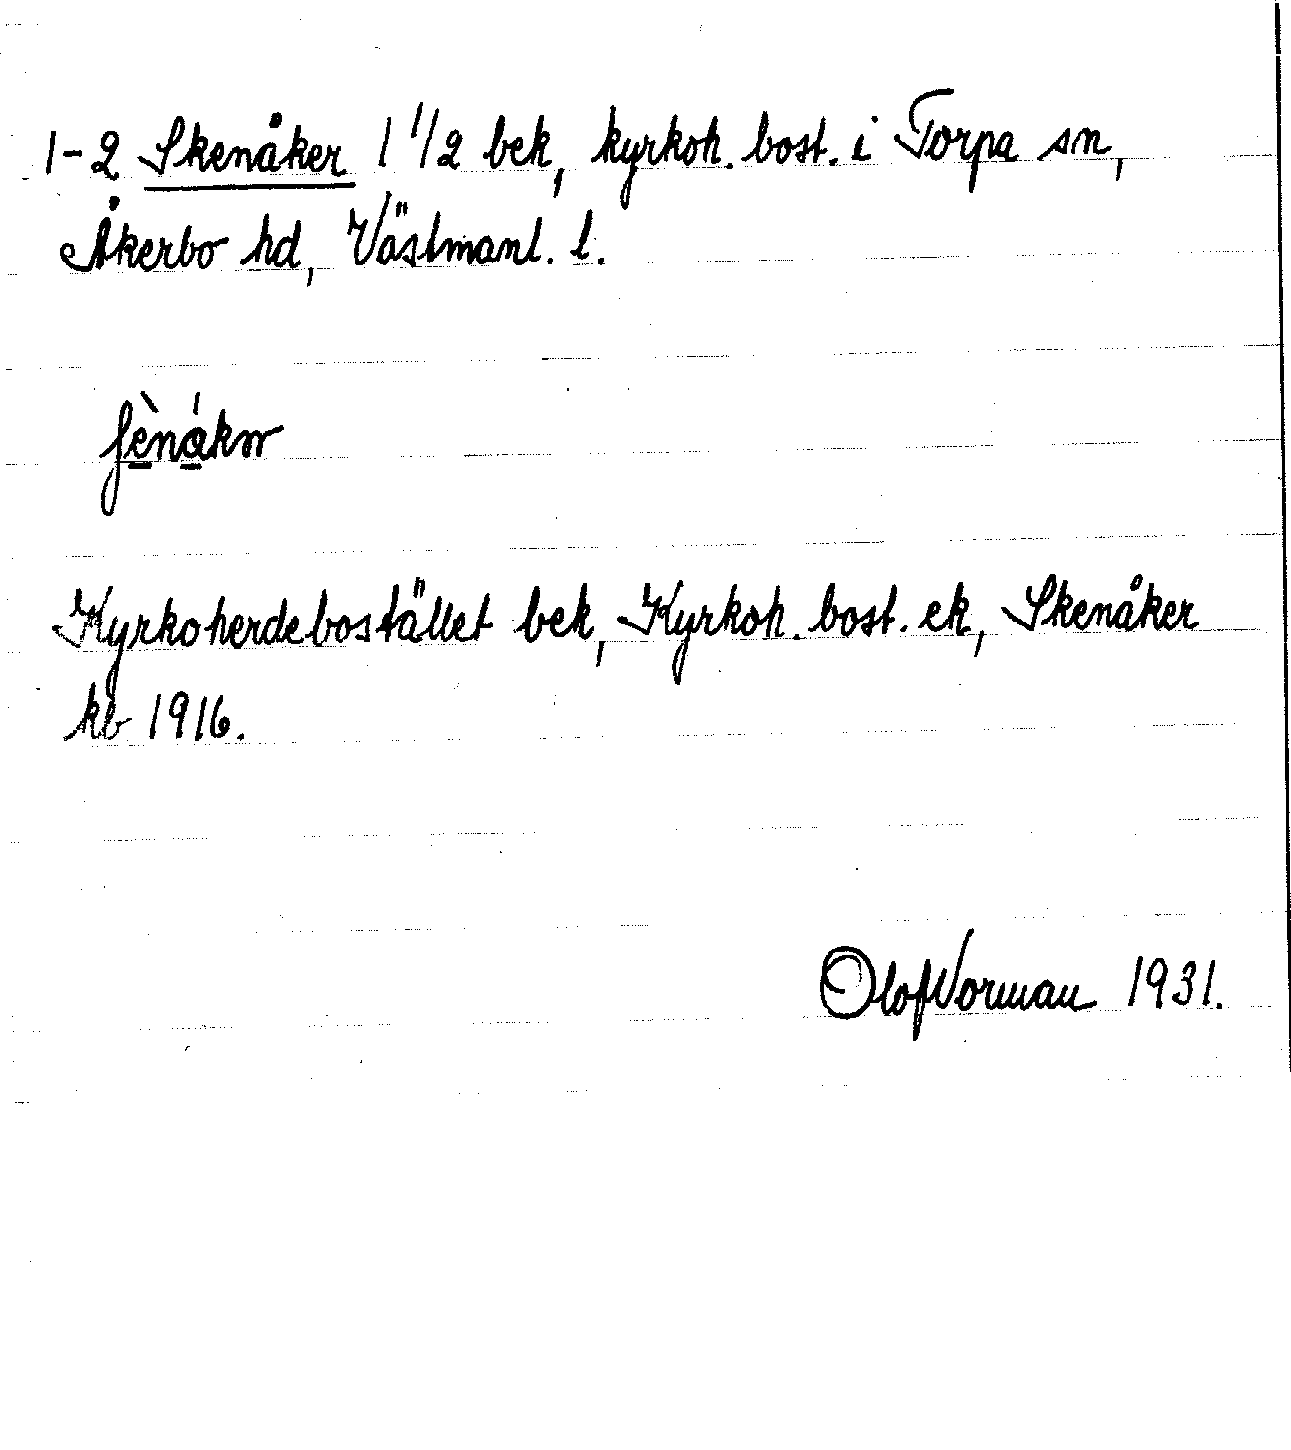 1-2 Skenåker 1 1/2 bek, kyrkoh. bost. i Torpa sn,
Åkerbo hd, Västmanl. l.
ʃènákɷr
Kyrkoherdebostället bek, Kyrkoh. bost. ek, Skenåker
kb 1916.
Olof Norman 1931.